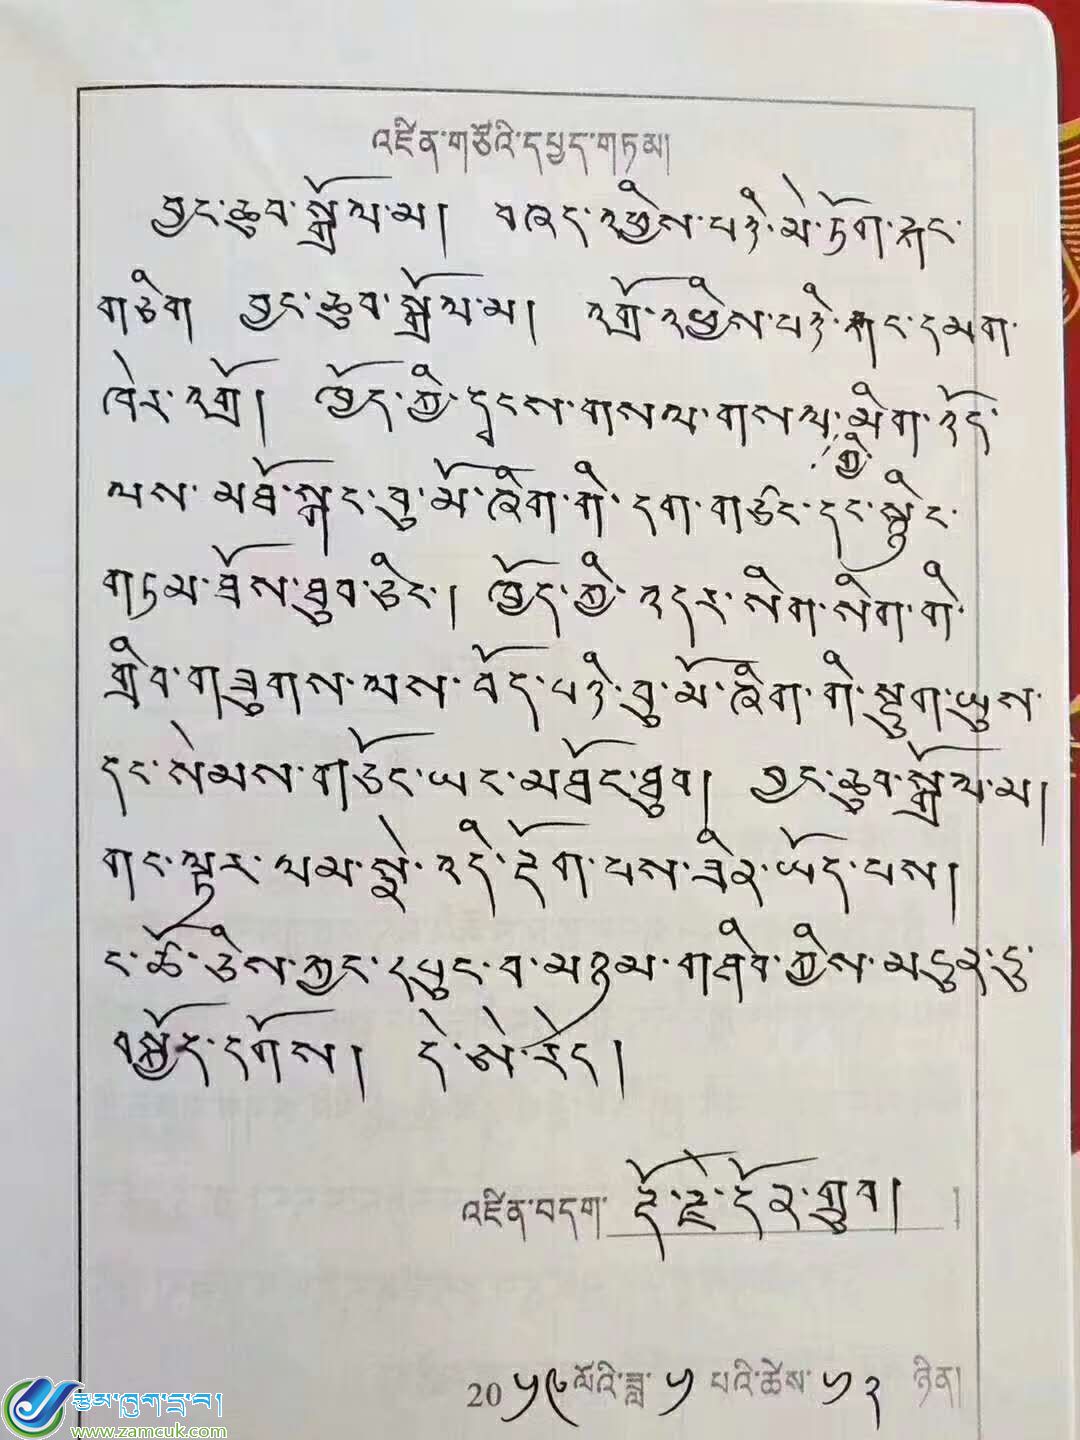 འཛིན་གཙོའི་དཔྱད་གཏམ།
བྱང་ཆུབ་སྒྲོལ་མ། བཞད་འཕྲོས་པའི་མེ་ཏོག་རྐང་
གཅིག བྱང་ཆུབ་སྒྲོལ་མ། འགྲོ་འཕྱོས་པའི་གང་དམག་
ཁེར་འགྲོ། ཁྱོད་ཀྱི་དྭངས་གསལ་གསལ་མིག་འོད་
ཀྱི་
ལས་མཐོ་སྒང་བུ་མོ་ཞིག་གི་དག་གཙང་དང་སྙིང་
གཏམ་ཐོས་ཐུབ་ཅིང་། ཁྱོད་ཀྱི་འདར་སིག་སིག་གི་
གྲིབ་གཟུགས་ལས་བོད་པའི་བུ་མོ་ཞིག་གི་སྡུག་ཡུས་
དང་སེམས་གཅོང་ཡང་མཐོང་ཐུབ། བྱང་ཆུབ་སྒྲོལ་མ།
གང་ལྟར་ལམ་སྣེ་འདི་རྫོག་པས་ཟེར་ཡོད་པས།
ང་ཚོ་ཅིས་ཀྱང་དཔུང་བ་མཉམ་གཤིབ་ཀྱིས་མདུན་དུ་
བསྐྱོད་དགོས། དེ་མ་རེད།
འཛིན་བདག་ རྡོ་རྗེ་དོན་གྲུབ། །
20༡༩ལོའི་ཟླ་༥ པའི་ཚེས་༡༢ ཉིན།
རྩམ་ཁུག་དྲ་བ།
www.zamcuk.com